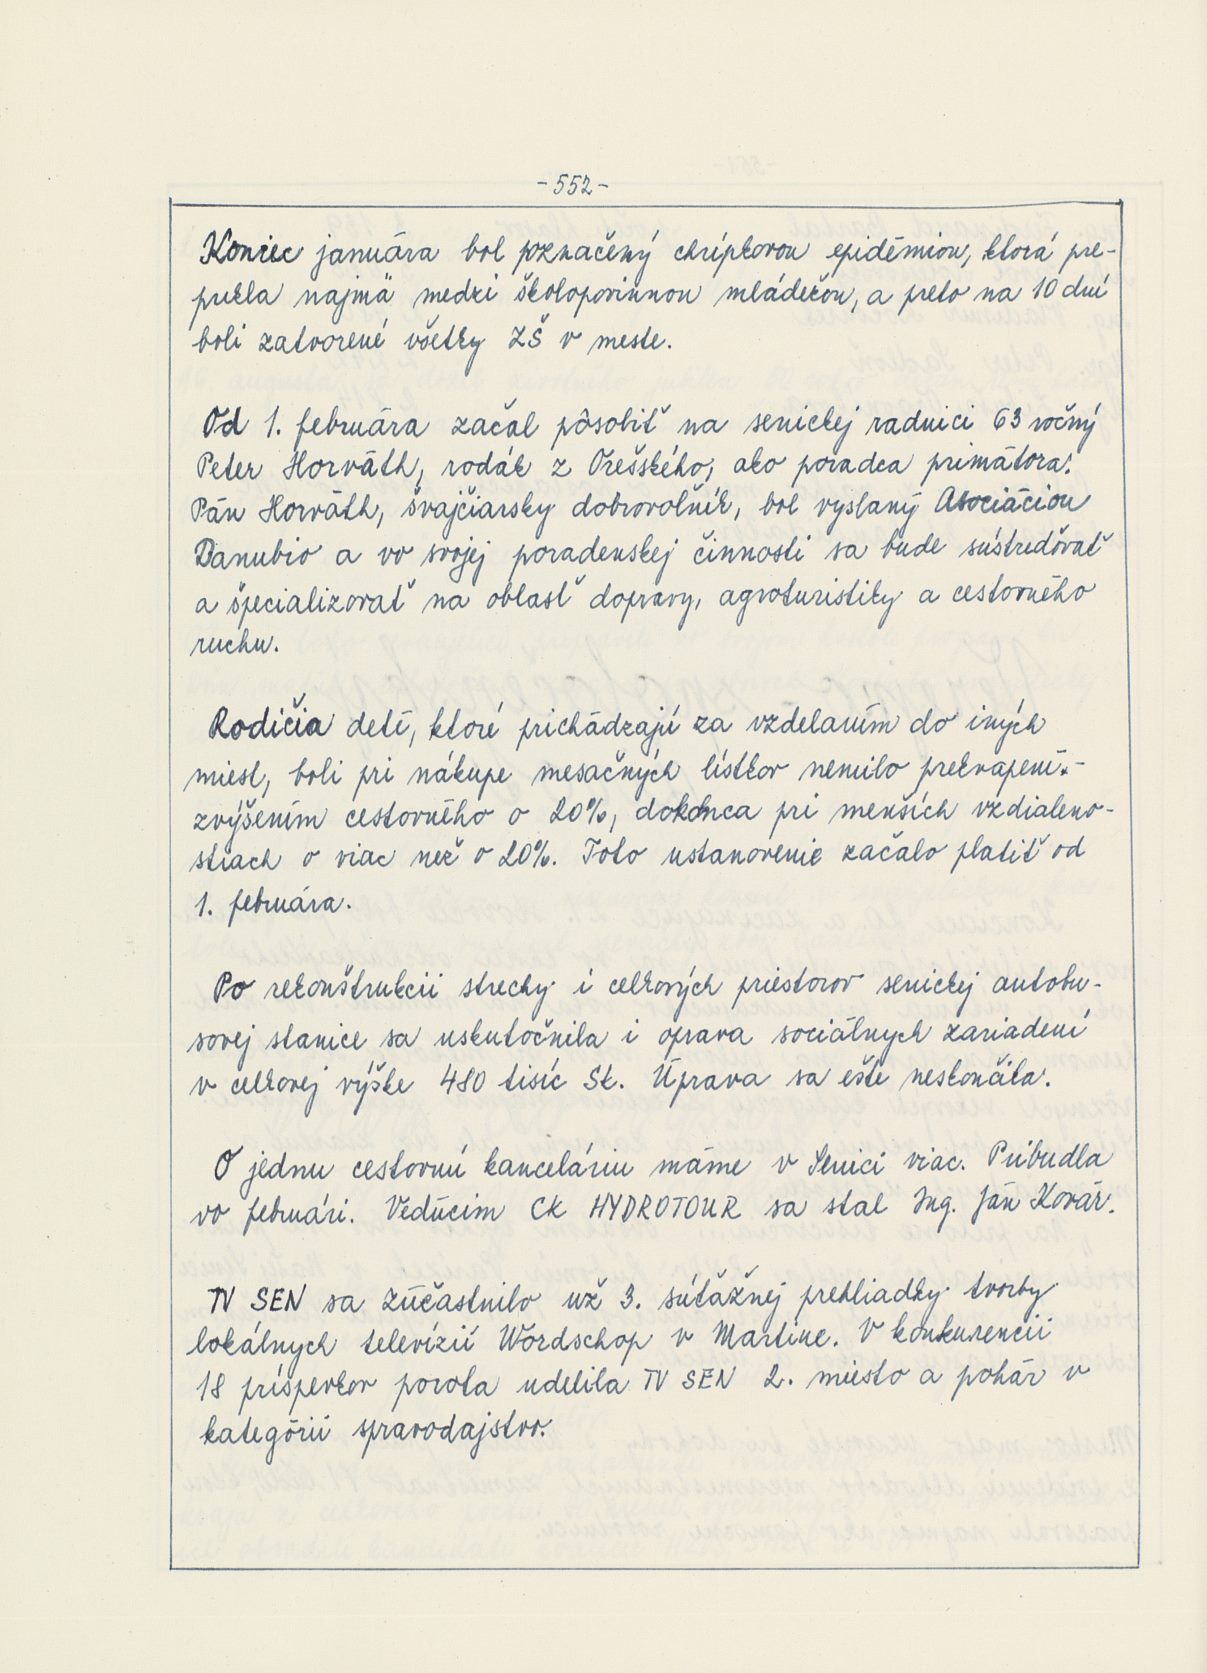 -552-
Koniec januára bol poznačený chrípkovou epidémiou, ktorá pre-
pukla najmä medzi školopovinnou mládežou, a preto na 10 dní
boli zatvorené všetky ZŠ v meste.
Od 1. februára začal pôsobiť na senickej radnici 63 ročný
Peter Horváth, rodák z Orešského, ako poradca primátora.
Pán Horváth, švajčiarsky dobrovoľník, bol vyslaný Asociáciou
Danubio a vo svojej poradenskej činnosti sa bude sústreďovať
a špecializovať na oblasť dopravy, agroturistiky a cestovného
ruchu.
Rodičia detí, ktoré prichádzajú za vzdelaním do iných
miest, boli pri nákupe mesačných lístkov nemilo prekvapení.-
zvýšením cestovného o 20%, dokonca pri menších vzdialeno-
stiach o viac než o 20%. Toto ustanovenie začalo platiť od
1. februára.
Po rekonštrukcii strechy i celkových priestorov senickej autobu-
sovej stanice sa uskutočnila i oprava sociálnych zariadení
v celkovej výške 480 tisíc Sk. Úprava sa ešte neskončila.
O jednu cestovnú kanceláriu máme v Senici viac. Pribudla
vo februári. Vedúcim CK HYDROTOUR sa stal Ing. Ján Kovár.
TV SEN sa zúčastnilo už 3. súťažnej prehliadky tvorby
lokálnych televízií Wordschop v Martine. V konkurencii
18 príspevkov porota udelila TV SEN 2. miesto a pohár v
kategórii spravodajstvo.